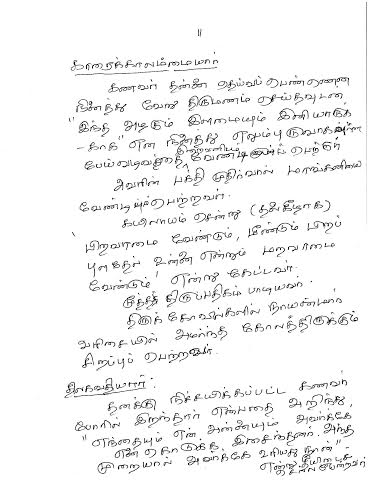 11
காரைக்காலம்மையார்
கணவர் தன்னை தெய்வப் பெண்ணென
நினைத்து வேறு திருமணம் செய்தவுடன்
"இந்த அழகும் இளமையும் இனியாருக்
- காக" என நினைத்து எலும்புருவாகவுள்ள
பேய்வடிவத்தை வேண்டிப் பெற்றார்
அவரின் பக்தி முதிர்வால் மாங்கனியை
வேண்டிப்பெற்றவர்.
கயிலாயம் சென்று (தலைகீழாக)
'பிறவாமை வேண்டும், மீண்டும் பிறப்
புளதேல் உன்னை என்றும் மறவாமை
வேண்டும்' என்று கேட்டவர்.
மூத்த திருப்பதிகம் பாடியவர்.
திருக் கோவில்களில் நாயன்மார்
வரிசையில் அமர்ந்த கோலத்திருக்கும்
சிறப்புப் பெற்றவர்.
திலகவதியார் :
தனக்கு நிச்சயிக்கப்பட்ட கணவர்
போரில் இறந்தார் என்பதை அறிந்து,
"எந்தையும் என் அன்னையும் அவர்க்கே
என் கொடுக்க இசைந்தனர். அந்த
முறையால் அவர்க்கே உரியது நான்" -
என்று
பெற்றவர்